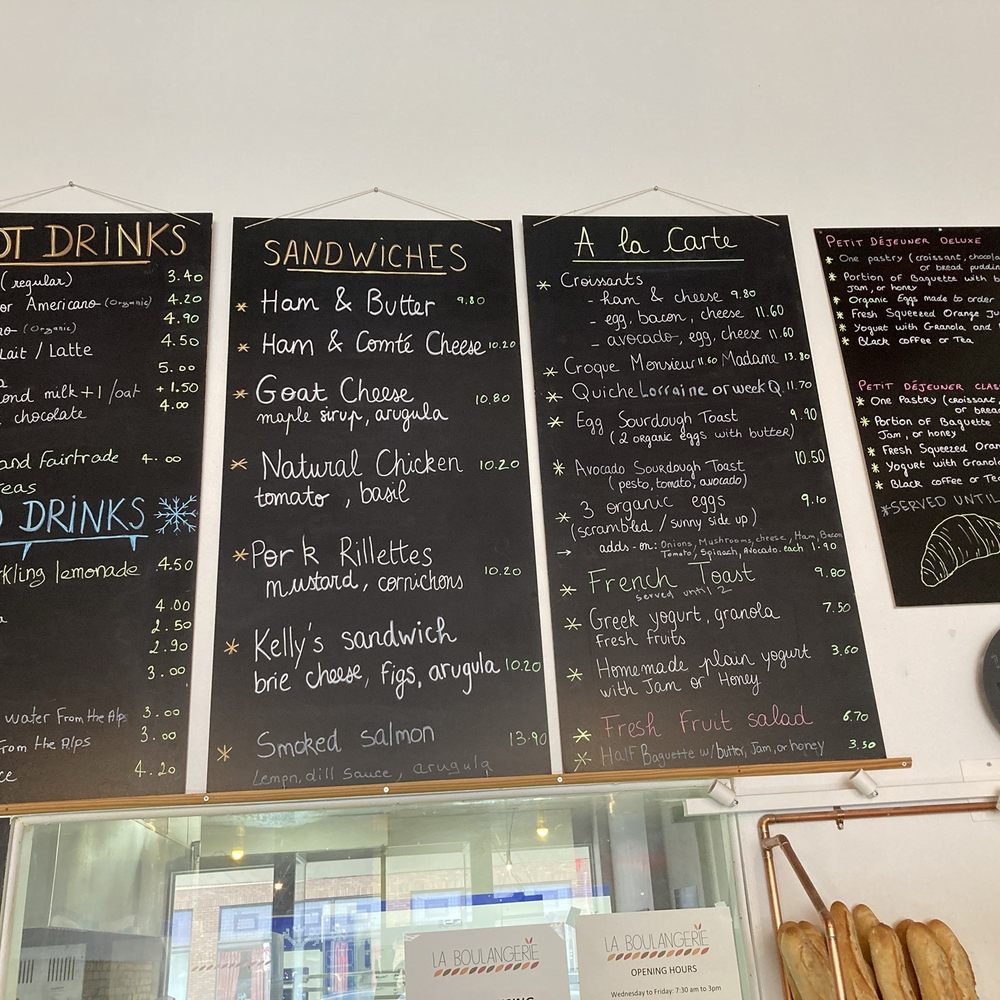 OT DRINKS
( regular) 3.40
or Americano (Organic) 4.20
(Organic) 4.90
Lait / Latte 4.50
5.00
ond milk +1 /oat + 1.50
chocolate 4.00
and Fairtrade 4.00
Teas
DRINKS
rkling lemonade 4.50
4.00
2.50
2.90
3.00
water From the Alps 3.00
From the Alps 3.00
4.20
SANDWICHES
* Ham & Butter 9.80
* Ham & Comté Cheese 10.20
* Goat Cheese 10.80
maple sirup, arugula
* Natural Chicken 10.20
tomato, basil
* Pork Rillettes
mustard, cornichons 10.20
* Kelly's sandwich
brie cheese, figs, arugula 10.20
* Smoked salmon 13.90
Lemon, dill sauce, arugula
A la Carte
* Croissants
- ham & cheese 9.80
- egg, bacon, cheese 11.60
- avocado, egg, cheese 11.60
* Croque Monsieur 11.60 Madame 13.80
* Quiche Lorraine or week Q. 11.70
* Egg Sourdough Toast 9.90
(2 organic eggs with butter)
* Avocado Sourdough Toast 10.50
(pesto, tomato, avocado)
* 3 organic eggs 9.10
(scrambled / sunny side up)
→ adds-on: Onions, Mushrooms, cheese, Ham, Bacon
Tomato, Spinach, Avocado. each 1.90
* French Toast 9.80
served until 2
* Greek yogurt, granola 7.50
fresh fruits
* Homemade plain yogurt 3.60
with Jam or Honey
* Fresh fruit salad 6.70
* Half Baguette w/ butter, Jam, or honey 3.50
PETIT DÉJEUNER DELUXE
* One pastry (croissant, chocola
or bread puddin
* Portion of Baguette with b
Jam, or honey
* Organic Eggs made to order
* Fresh Squeezed Orange Ju
* Yogurt with Granola and
* Black coffee or Tea
PETIT DÉJEUNER CLAS
* One Pastry (croissant,
or bread
* Portion of Baguette
Jam, or honey
* Fresh Squeezed Oran
* Yogurt with Granola
* Black coffee or Tea
*SERVED UNTIL
LA BOULANGERIE
LA BOULANGERIE
OPENING HOURS
Wednesday to Friday: 7:30 am to 3pm